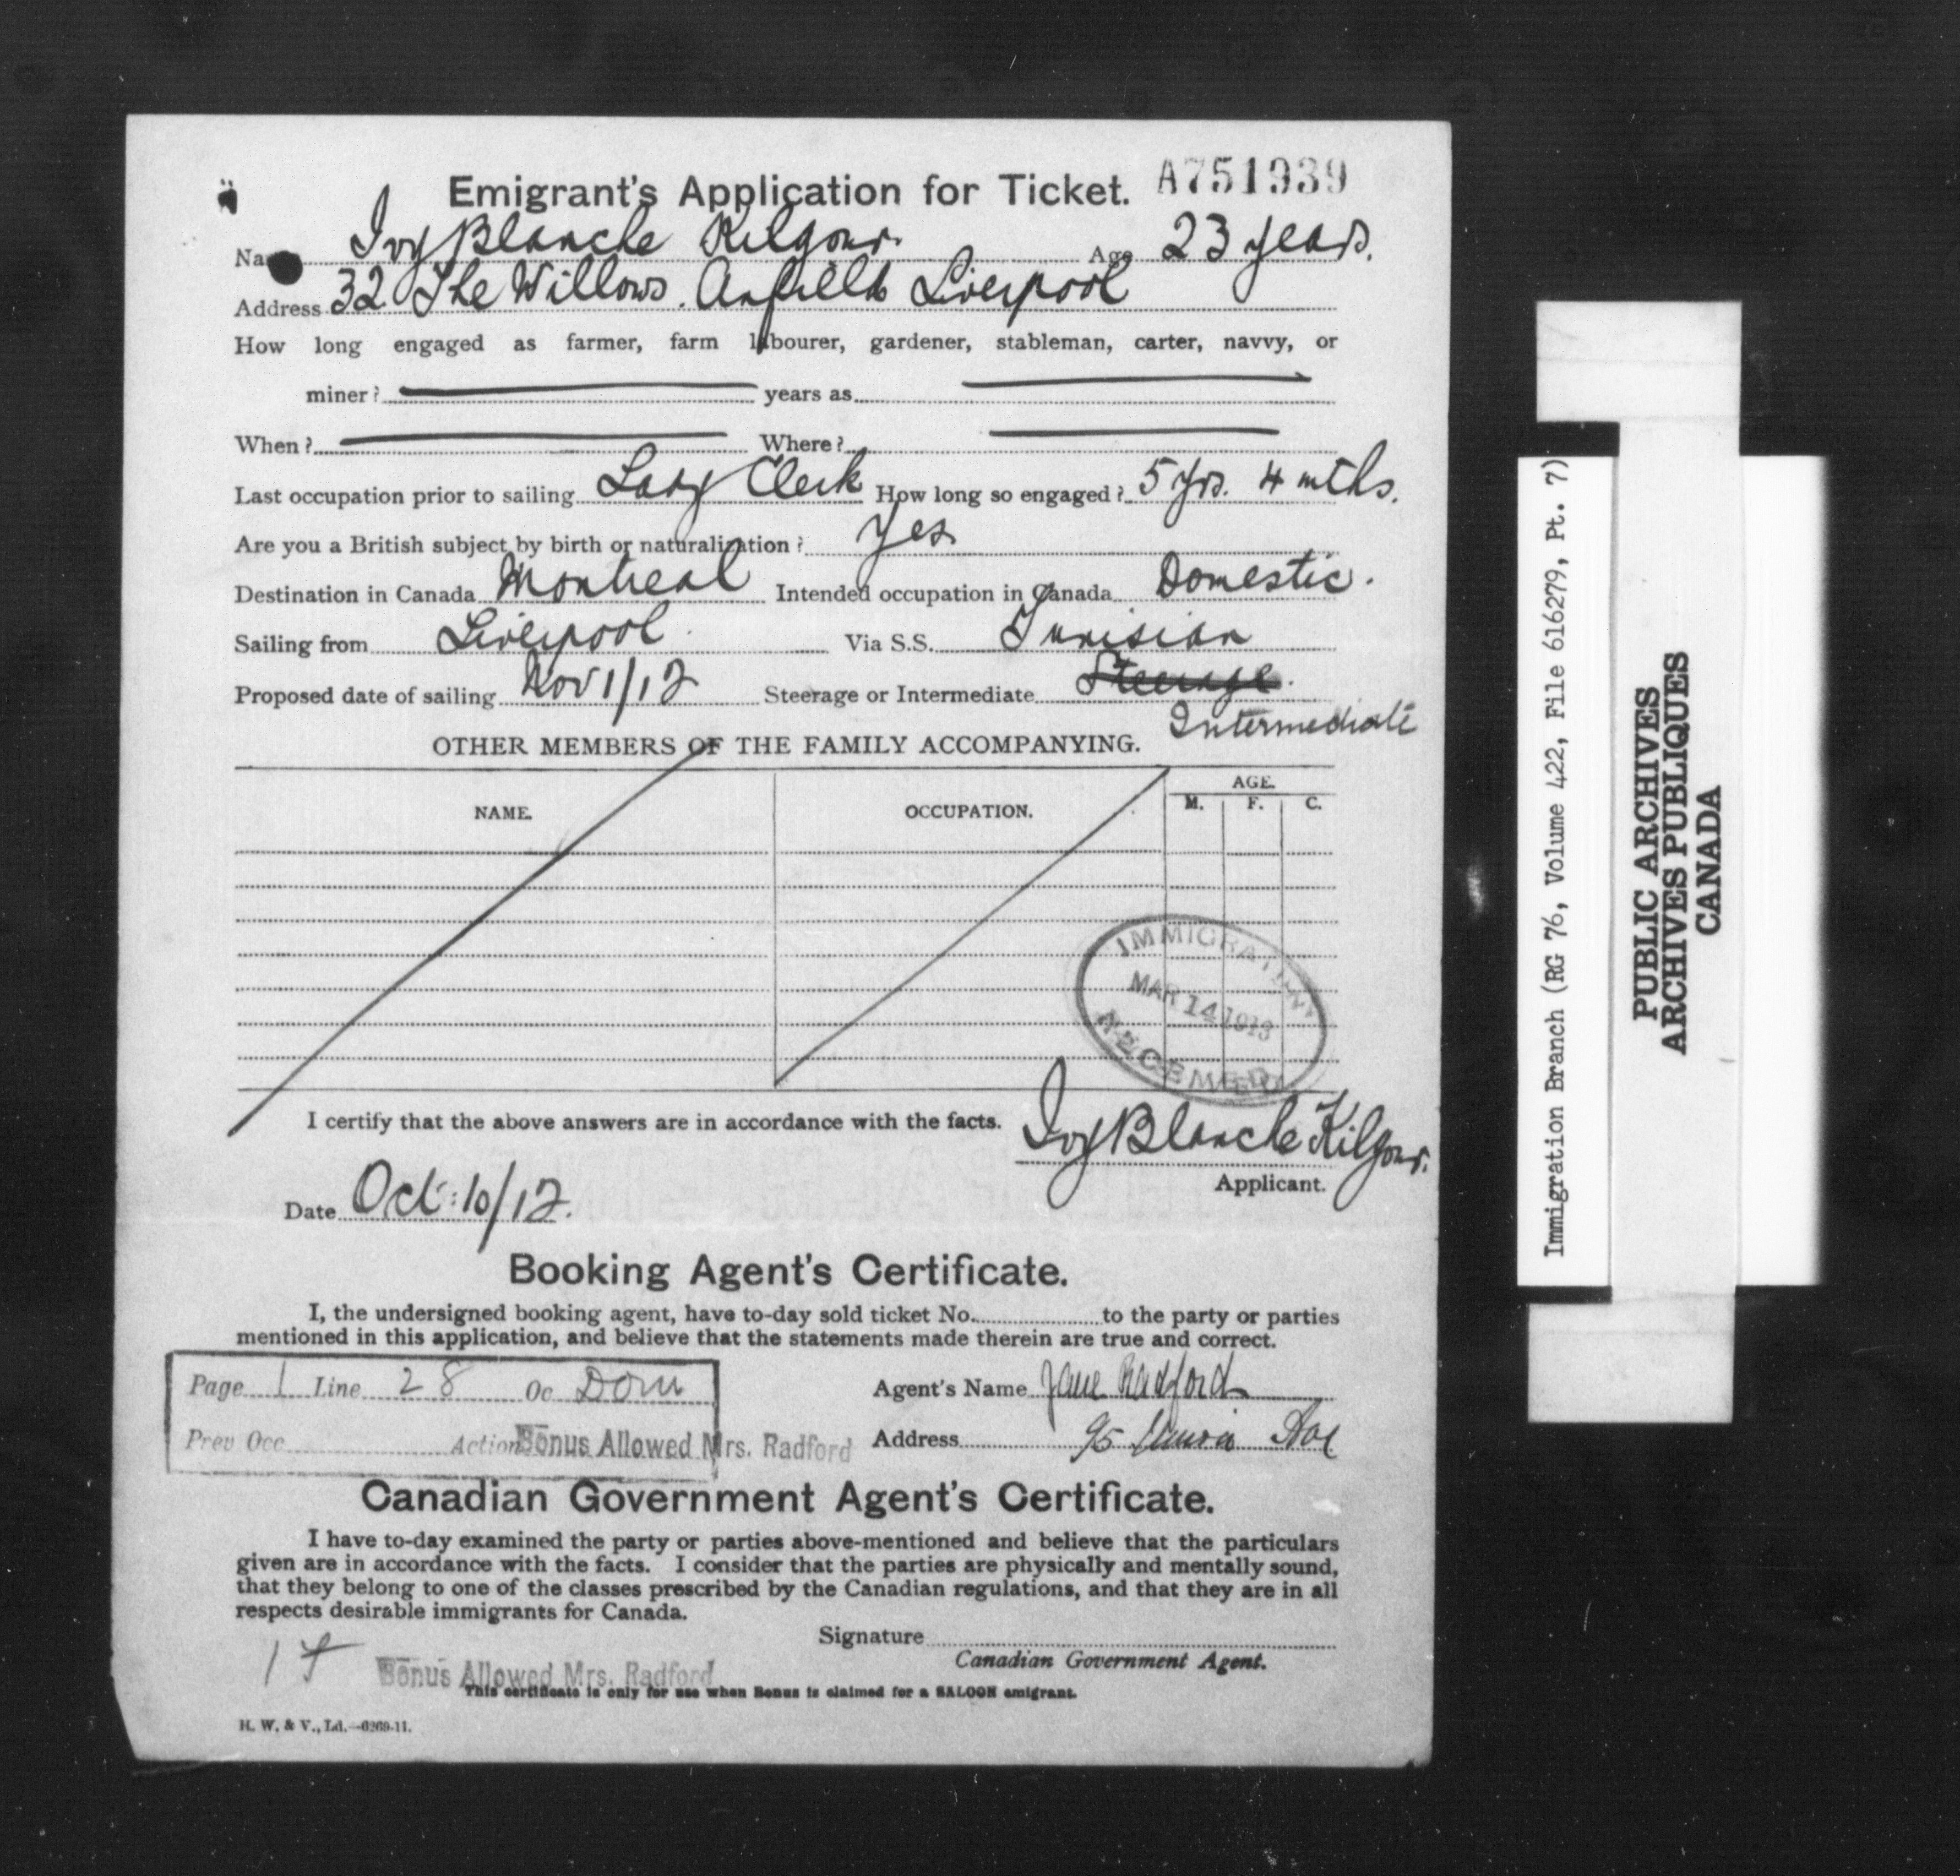 Emigrant's Application for Ticket. A751939
Name Ivy Blanche Kilgour. Age 23 years.
Address 32 The Willows. Anfield Liverpool
How long engaged as farmer, farm labourer, gardener, stableman, carter, navvy, or
miner? years as
When? Where?
Last occupation prior to sailing Lady Clerk How long so engaged? 5 yrs. 4 mths.
Are you a British subject by birth or naturalization? Yes
Destination in Canada Montreal Intended occupation in Canada Domestic.
Sailing from Liverpool. Via S.S. Tunisian
Proposed date of sailing Nov 1/12 Steerage or Intermediate Steerage.
Intermediate
OTHER MEMBERS OF THE FAMILY ACCOMPANYING.
NAME. OCCUPATION. AGE.
M. F. C.
IMMIGRATION
MAR 14 1913
RECEIVED
I certify that the above answers are in accordance with the facts. Ivy Blanche Kilgour.
Applicant.
Date Oct: 10/12.
Booking Agent's Certificate.
I, the undersigned booking agent, have to-day sold ticket No. to the party or parties
mentioned in this application, and believe that the statements made therein are true and correct.
Page 1 Line 28 Oc Dom
Agent's Name Jane Radford
Prev Occ Action Bonus Allowed Mrs. Radford
Address 95
Canadian Government Agent's Certificate.
I have to-day examined the party or parties above-mentioned and believe that the particulars
given are in accordance with the facts. I consider that the parties are physically and mentally sound,
that they belong to one of the classes prescribed by the Canadian regulations, and that they are in all
respects desirable immigrants for Canada.
Signature
Canadian Government Agent.
Bonus Allowed Mrs. Radford
This certificate is only for use when Bonus is claimed for a SALOON emigrant.
H. W. & V., Ld.—6269-11.
Immigration Branch (RG 76, Volume 422, File 616279, Pt. 7)
PUBLIC ARCHIVES
ARCHIVES PUBLIQUES
CANADA